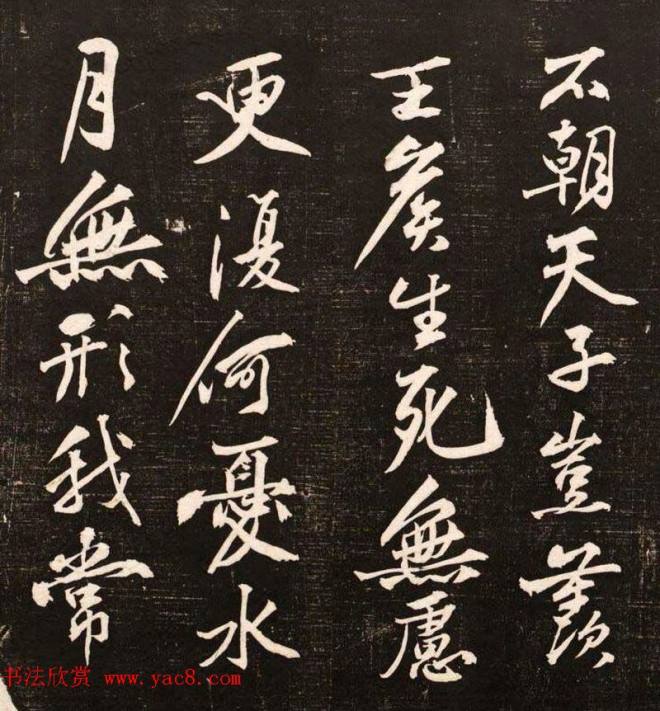 不朝天子豈羨
王矦生死無慮
更復何憂水
月無形我常
书法欣赏 www.yac8.com